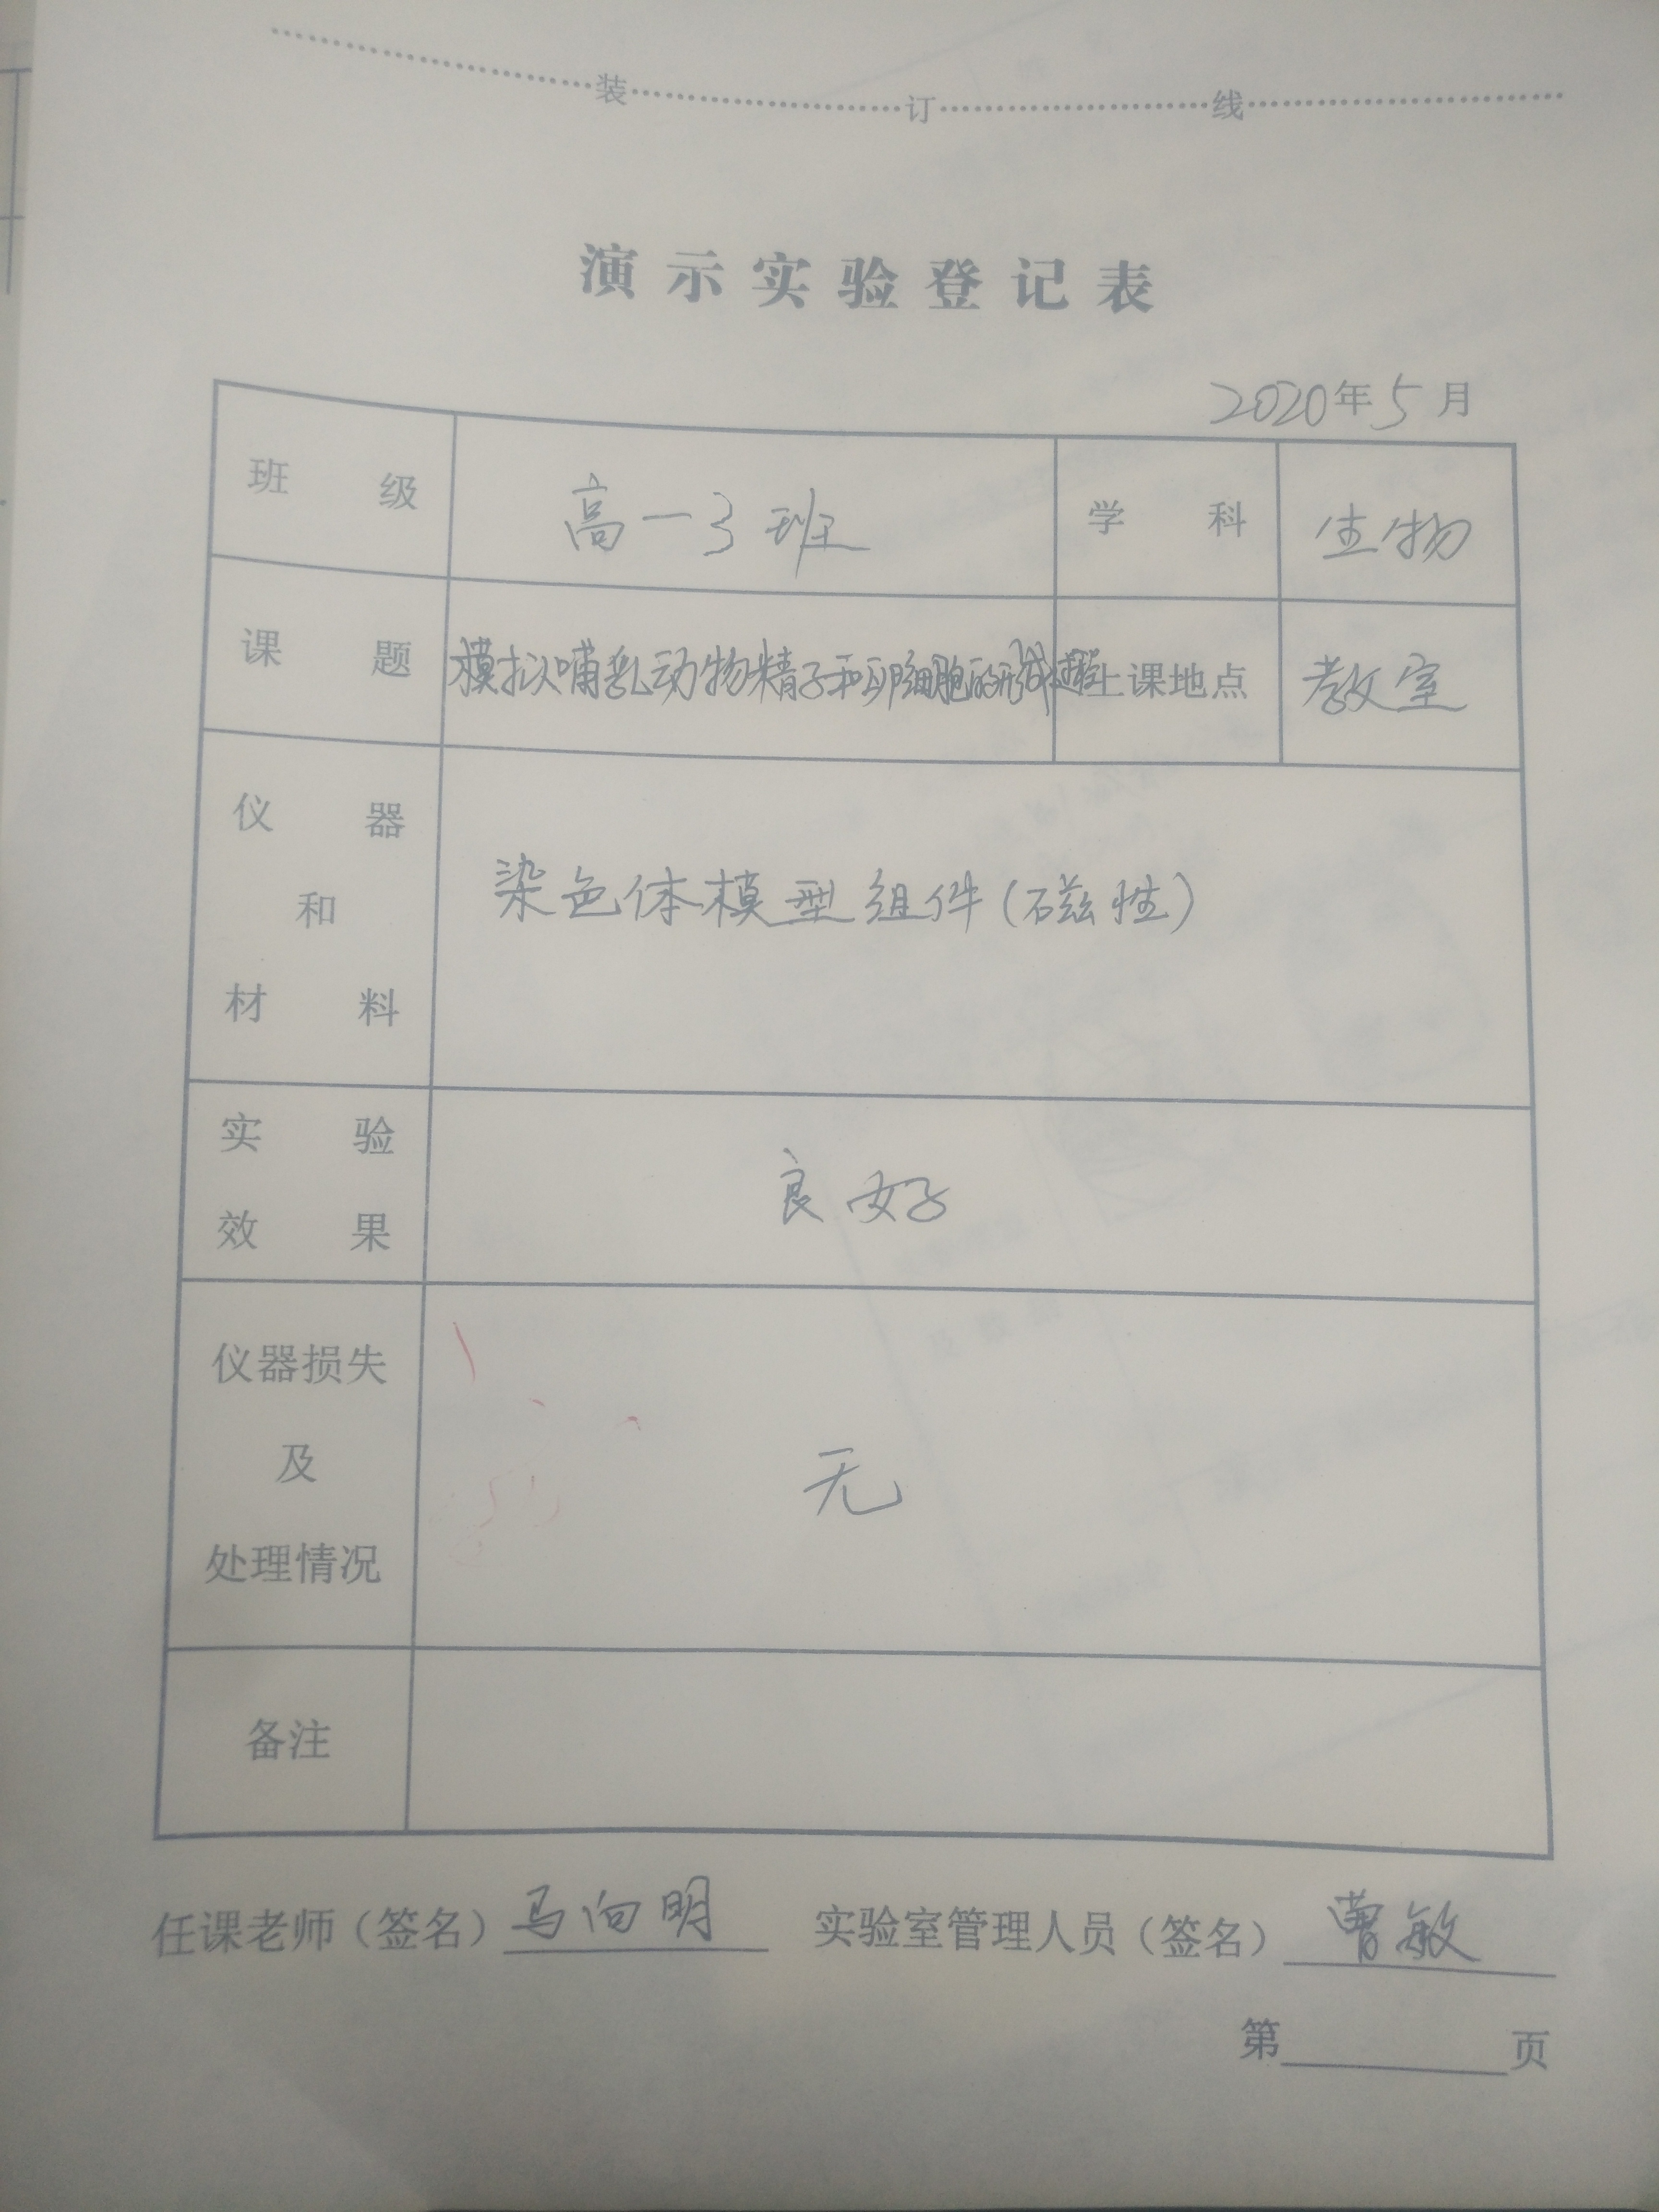 装 订 线
演示实验登记表
2020年5月
班级 高一3班 学科 生物
课题 模拟哺乳动物精子和卵细胞的形成过程 上课地点 教室
仪器
和
材料
染色体模型组件(磁性)
实验
效果
良好
仪器损失
及
处理情况
无
备注
任课老师(签名)马向明 实验室管理人员(签名)曹敏
第 页